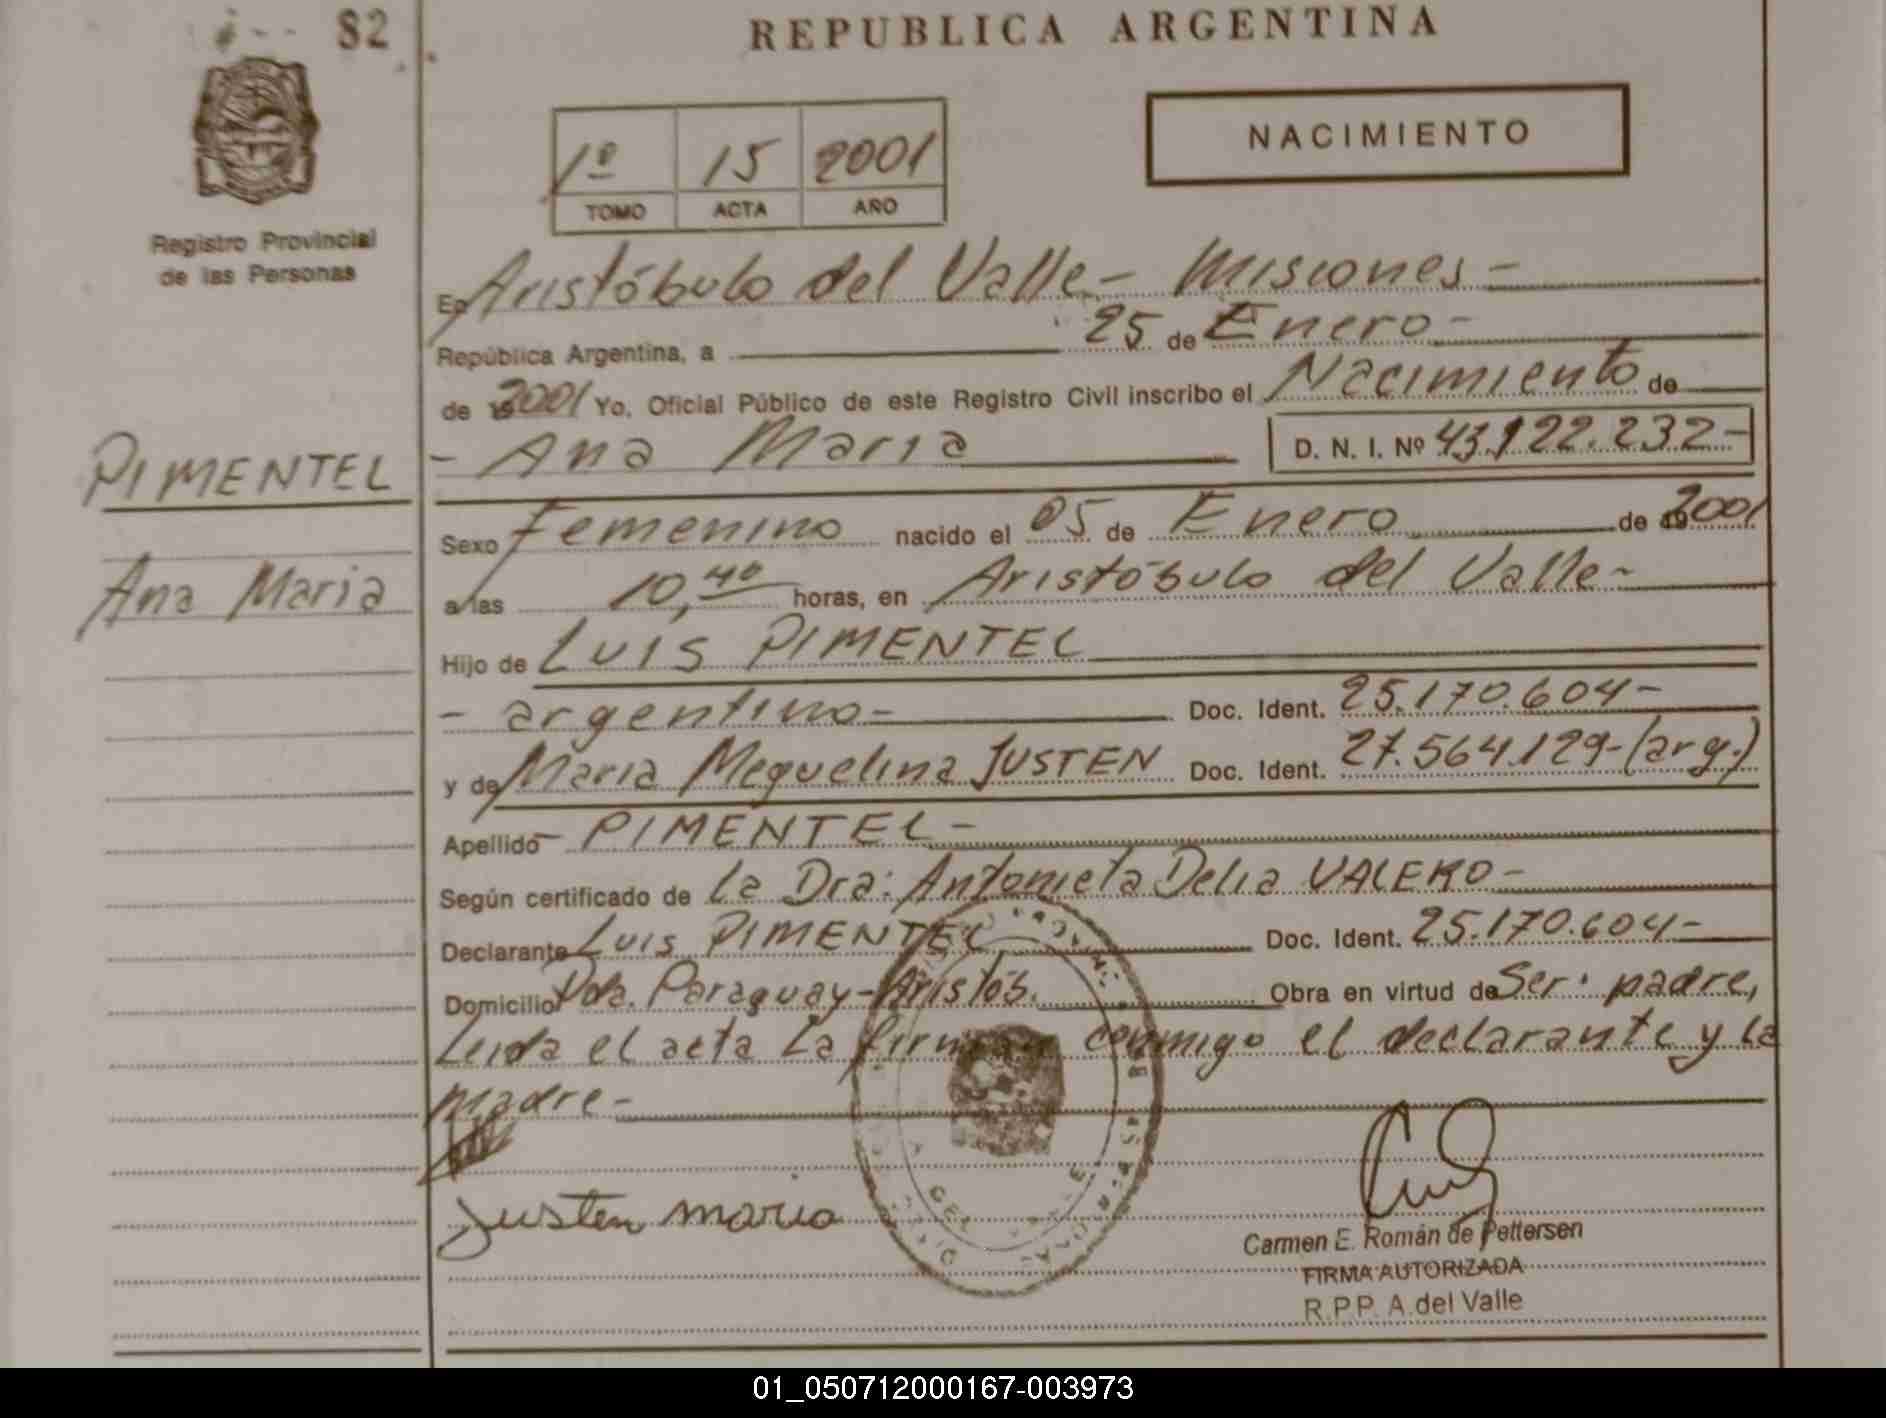 82
REPUBLICA ARGENTINA
NACIMIENTO
1º 15 2001
TOMO ACTA AÑO
Registro Provincial
de las Personas
En Aristóbulo del Valle - Misiones -
República Argentina, a 25 de Enero -
de 19 2001 Yo, Oficial Público de este Registro Civil inscribo el Nacimiento de
- Ana Maria D. N. I. Nº 43.122.232-
PIMENTEL
Ana Maria
Sexo Femenino nacido el 05 de Enero de 19 2001
a las 10,40 horas, en Aristóbulo del Valle -
Hijo de Luis PIMENTEL
- argentino - Doc. Ident. 25.170.604-
y de Maria Meguelina JUSTEN Doc. Ident. 27.564.129-(arg.)
Apellido - PIMENTEL -
Según certificado de la Dra: Antonieta Delia VALERO -
Declarante Luis PIMENTEL Doc. Ident. 25.170.604-
Domicilio Pda. Paraguay - Aristób. Obra en virtud de Ser: padre,
Leida el acta La firman conmigo el declarante y la
madre -
Justen maria
Carmen E. Román de Pettersen
FIRMA AUTORIZADA
R.P.P. A.del Valle
01_050712000167-003973